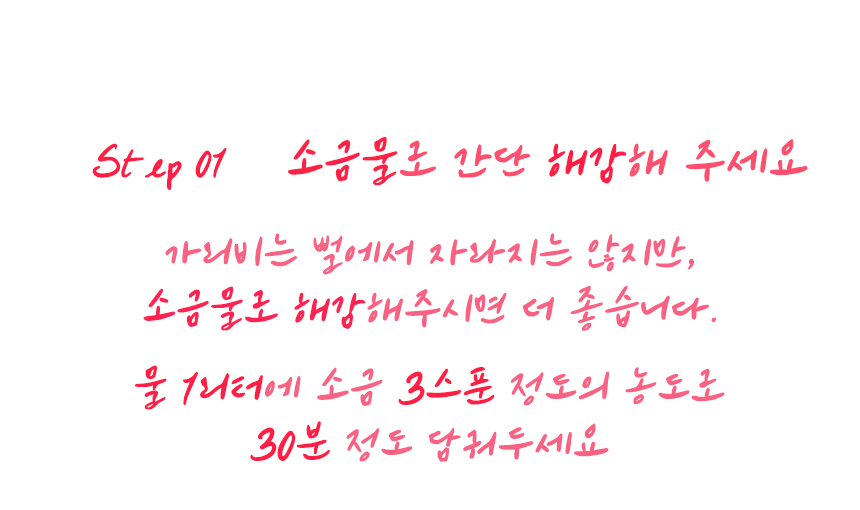 Step 01 소금물로 간단 해감해 주세요
가리비는 뻘에서 자라지는 않지만,
소금물로 해감해주시면 더 좋습니다.
물 1리터에 소금 3스푼 정도의 농도로
30분 정도 담궈두세요